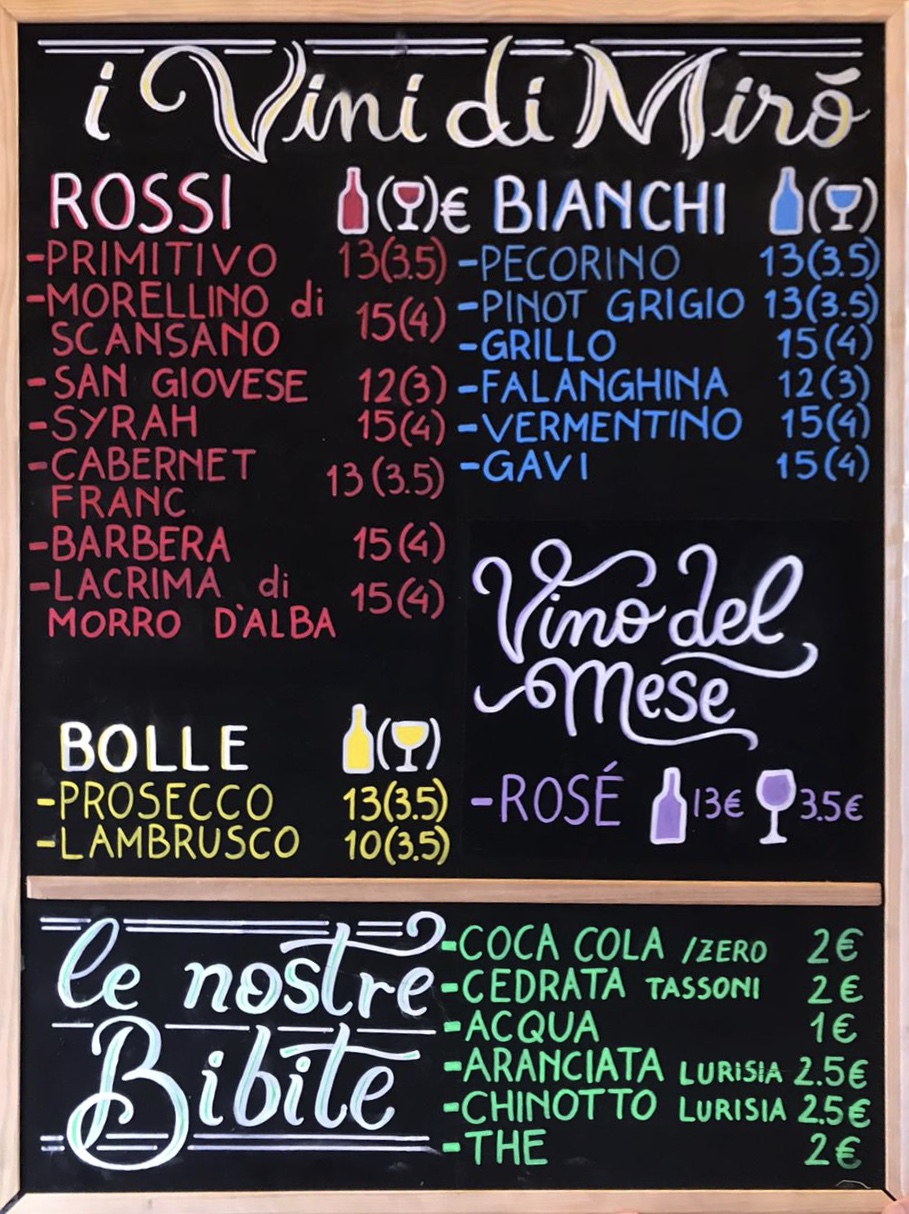 i Vini di Miró
ROSSI ( )€
-PRIMITIVO 13(3.5)
-MORELLINO di
SCANSANO 15(4)
-SAN GIOVESE 12(3)
-SYRAH 15(4)
-CABERNET
FRANC 13(3.5)
-BARBERA 15(4)
-LACRIMA di
MORRO D'ALBA 15(4)
BOLLE ( )
-PROSECCO 13(3.5)
-LAMBRUSCO 10(3.5)
BIANCHI ( )
-PECORINO 13(3.5)
-PINOT GRIGIO 13(3.5)
-GRILLO 15(4)
-FALANGHINA 12(3)
-VERMENTINO 15(4)
-GAVI 15(4)
Vino del
Mese
-ROSÉ 13€ 3.5€
le nostre
Bibite
-COCA COLA /ZERO 2€
-CEDRATA TASSONI 2€
-ACQUA 1€
-ARANCIATA LURISIA 2.5€
-CHINOTTO LURISIA 2.5€
-THE 2€